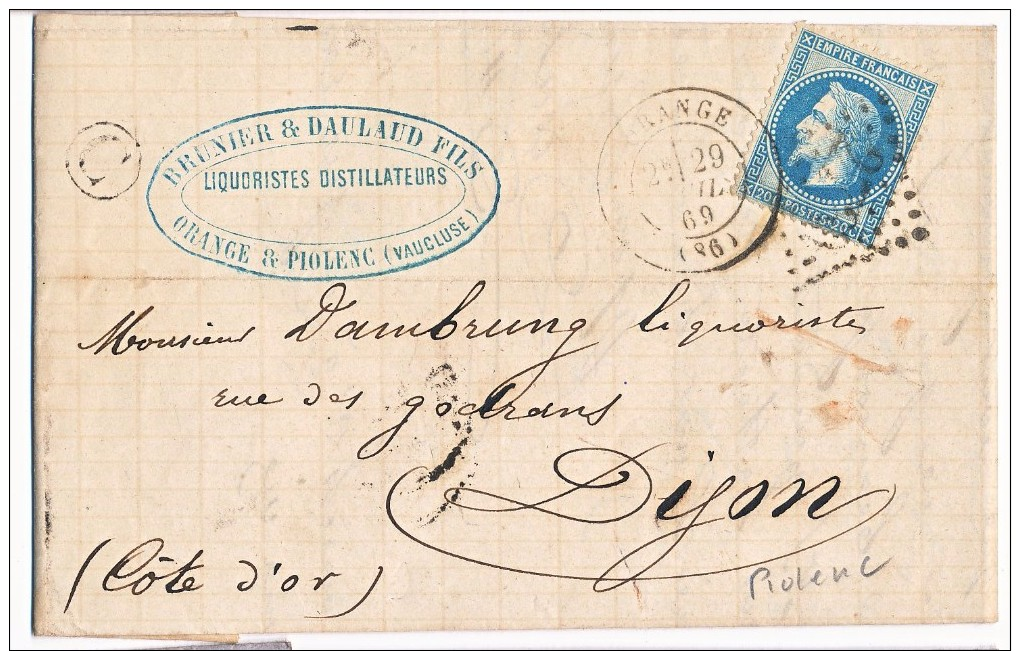 C
BRUNIER & DAULAUD FILS
LIQUORISTES DISTILLATEURS
ORANGE & PIOLENC (VAUCLUSE)
ORANGE
2E 29
69
(86)
EMPIRE FRANÇAIS
20 C POSTES 20 C
Monsieur Dambrung liquoriste
rue des godrans
Dijon
(Côte d'or)
Piolenc